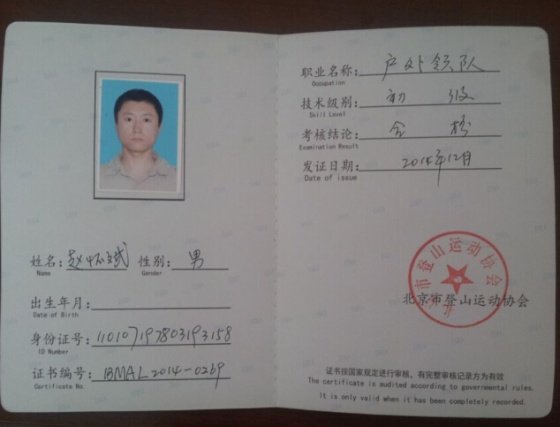 姓名：赵怀斌 性别：男
Name Gender
出生年月：
Date of Birth
身份证号：110107197803193158
ID Number
证书编号：BMAL2014-0269
Certificate No.
职业名称：户外领队
Occupation
技术级别：初 级
Skill Level
考核结论：合 格
Examination Result
发证日期：2014年12月
Date of issue
北京市登山运动协会
北京市登山运动协会
证书按国家规定进行审核，有完整审核记录方为有效
The certificate is audited according to governmental rules.
It is only valid when it has been completely recorded.